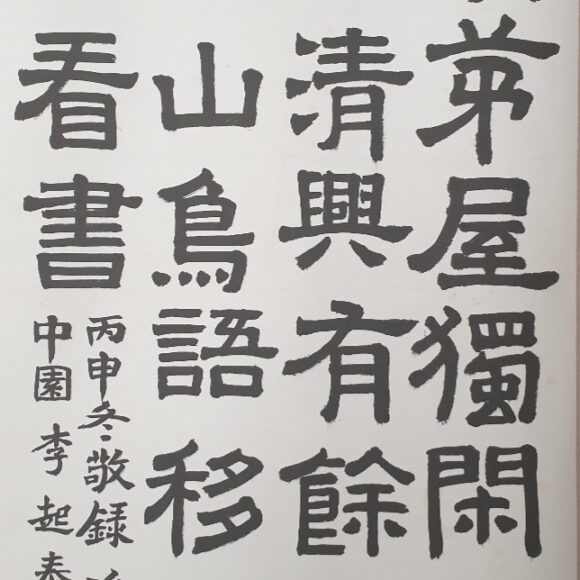 茅屋獨閑
清興有餘
山鳥語移
看書
丙申冬敬録
中園 李起